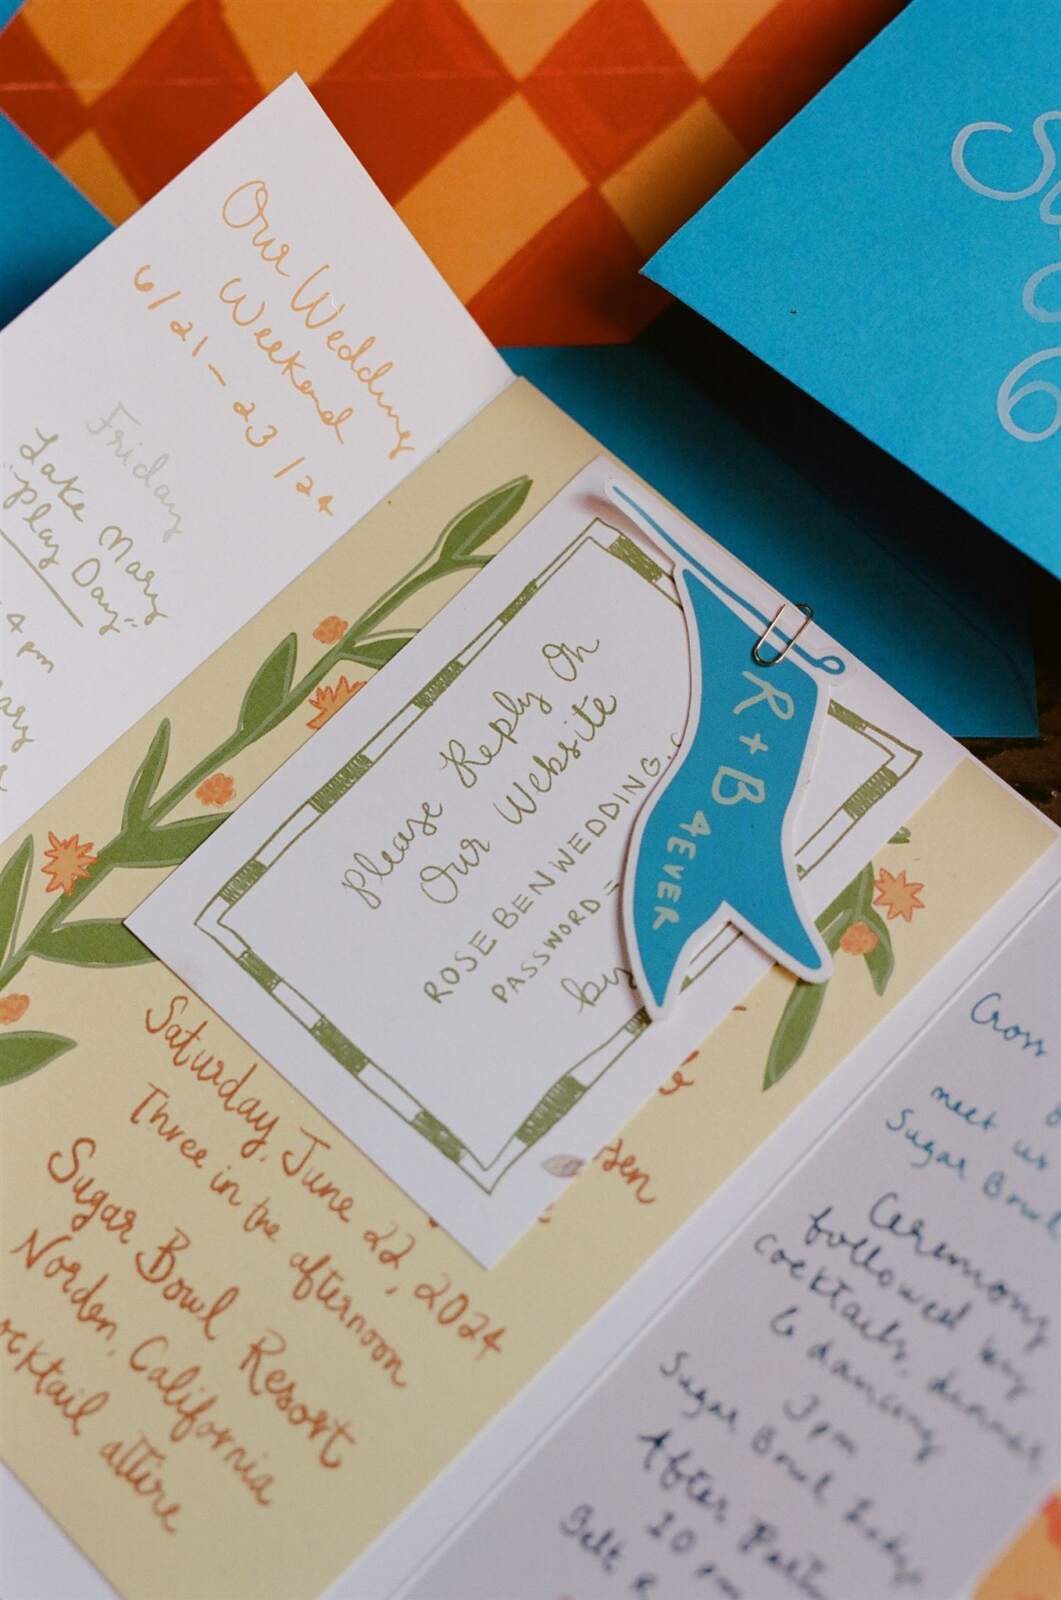 Our Wedding
Weekend
6/21 - 23/24
Friday
Lake Mary
"Play Day"
4 pm
Please Reply On
Our Website
ROSE BEN WEDDING.
PASSWORD =
R + B
4EVER
Saturday, June 22, 2024
Three in the afternoon
Sugar Bowl Resort
Norden, California
cktail attire
Cross
meet us
Sugar Bowl
Ceremony
followed by
cocktails, dinner
& dancing
3pm
Sugar Bowl Lodge
After Part
10 pm
Belt R
6